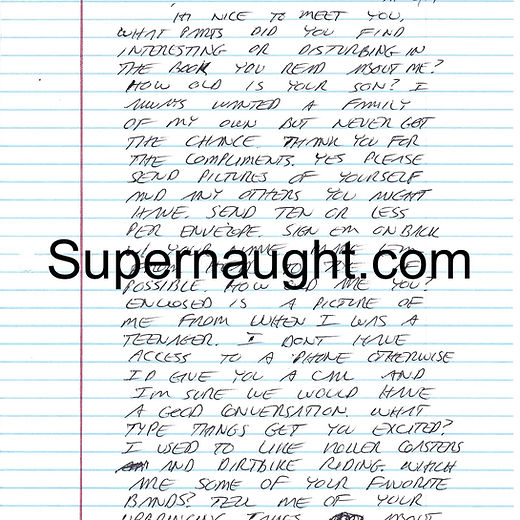 HI NICE TO MEET YOU,
WHAT PARTS DID YOU FIND
INTERESTING OR DISTURBING IN
THE BOOK YOU READ ABOUT ME?
HOW OLD IS YOUR SON? I
ALWAYS WANTED A FAMILY
OF MY OWN BUT NEVER GOT
THE CHANCE. THANK YOU FOR
THE COMPLIMENTS. YES PLEASE
SEND PICTURES OF YOURSELF
AND ANY OTHERS YOU MIGHT
HAVE. SEND TEN OR LESS
PER ENVELOPE. SIGN EM ON BACK
W/ YOUR NAME
Supernaught.com
POSSIBLE. HOW OLD ARE YOU?
ENCLOSED IS A PICTURE OF
ME FROM WHEN I WAS A
TEENAGER. I DONT HAVE
ACCESS TO A PHONE OTHERWISE
I'D GIVE YOU A CALL AND
I'M SURE WE WOULD HAVE
A GOOD CONVERSATION. WHAT
TYPE THINGS GET YOU EXCITED?
I USED TO LIKE ROLLER COASTERS
AND DIRTBIKE RIDING. WHICH
ARE SOME OF YOUR FAVORITE
BANDS? TELL ME OF YOUR
UPBRINGING ABOUT